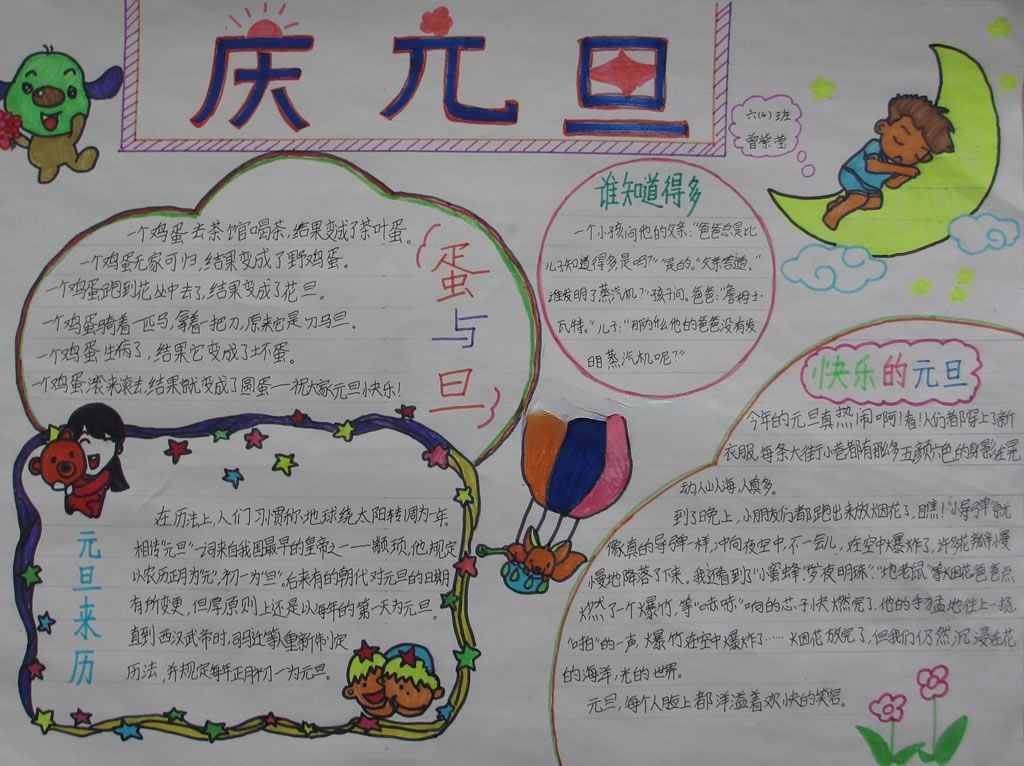 庆元旦
六(4)班
曾紫莹
蛋与旦
一个鸡蛋去茶馆喝茶,结果变成了茶叶蛋。
一个鸡蛋无家可归,结果变成了野鸡蛋。
一个鸡蛋跑到花丛中去了,结果变成了花旦。
一个鸡蛋骑着一匹马,拿着一把刀,原来它是刀马旦。
一个鸡蛋生病了,结果它变成了坏蛋。
一个鸡蛋滚来滚去,结果就变成了圆蛋——祝大家元旦快乐!
谁知道得多
一个小孩问他的父亲:"爸爸总是比
儿子知道得多是吗?""是的。"父亲答道。"
谁发明了蒸汽机?"孩子问。爸爸:"詹姆士·
瓦特。"儿子:"那为什么他的爸爸没有发
明蒸汽机呢?"
元旦来历
在历法上,人们习惯称地球绕太阳转周为一年。
相传"元旦"一词来自我国最早的皇帝之一——颛顼,他规定
以农历正月为"元",初一为"旦"。后来有的朝代对元旦的日期
有所变更,但原则上还是以每年的第一天为元旦。
直到西汉武帝时,司马迁等重新制定
历法,并规定每年正月初一为元旦。
快乐的元旦
今年的元旦真热闹啊!看!人们都穿上了新
衣服,每条大街小巷都有那多五颜六色的身影在晃
动,人山人海,人真多。
到了晚上,小朋友们都跑出来放烟花了,瞧!"小导弹"就
像真的导弹一样,冲向夜空中,不一会儿,在空中爆炸了,许多花瓣慢
慢地降落了下来,我还看到了"小蜜蜂""夜明珠""地老鼠"等烟花爸爸点
燃了一个爆竹,等"咔哧"响的芯子快燃完了,他的手猛地往上一扬,
"啪"的一声,爆竹在空中爆炸了……烟花放完了,但我们仍然沉浸在花
的海洋,光的世界。
元旦,每个人脸上都洋溢着欢快的笑容。